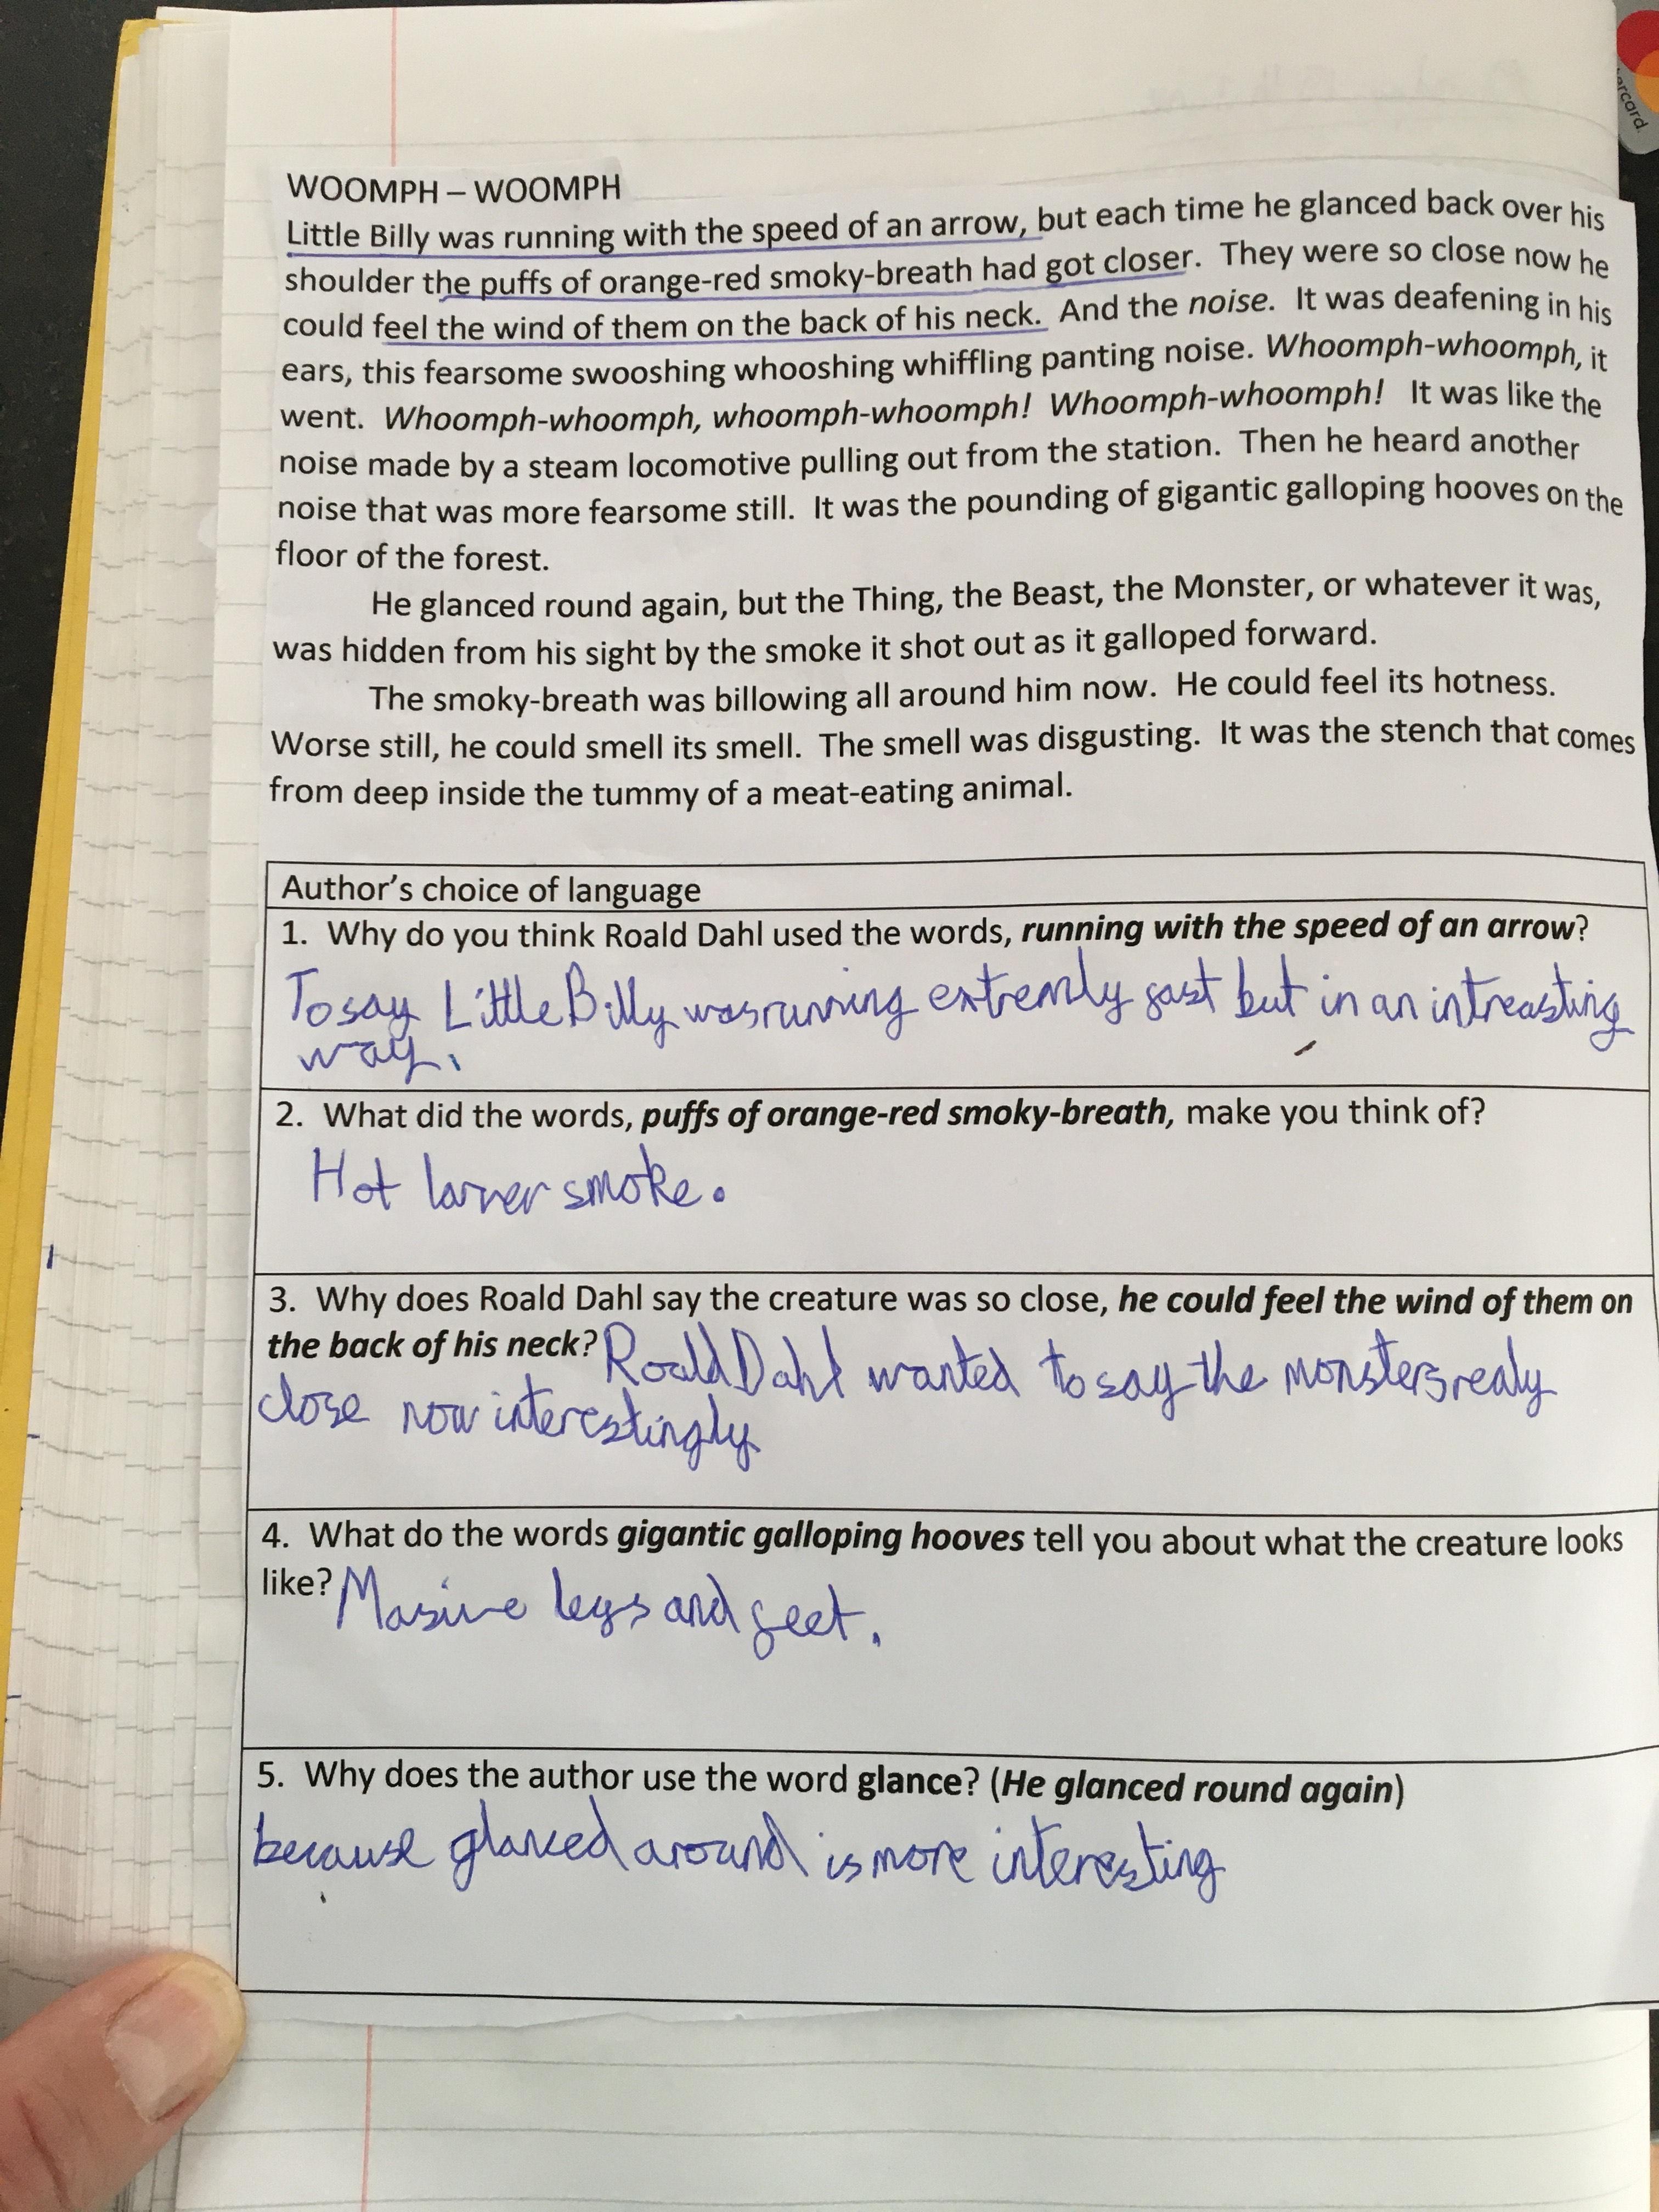 WOOMPH – WOOMPH
Little Billy was running with the speed of an arrow, but each time he glanced back over his
shoulder the puffs of orange-red smoky-breath had got closer. They were so close now he
could feel the wind of them on the back of his neck. And the noise. It was deafening in his
ears, this fearsome swooshing whooshing whiffling panting noise. Whoomph-whoomph, it
went. Whoomph-whoomph, whoomph-whoomph! Whoomph-whoomph! It was like the
noise made by a steam locomotive pulling out from the station. Then he heard another
noise that was more fearsome still. It was the pounding of gigantic galloping hooves on the
floor of the forest.
He glanced round again, but the Thing, the Beast, the Monster, or whatever it was,
was hidden from his sight by the smoke it shot out as it galloped forward.
The smoky-breath was billowing all around him now. He could feel its hotness.
Worse still, he could smell its smell. The smell was disgusting. It was the stench that comes
from deep inside the tummy of a meat-eating animal.
Author's choice of language
1. Why do you think Roald Dahl used the words, running with the speed of an arrow?
To say Little Billy was running extremly fast but in an intreasting
way.
2. What did the words, puffs of orange-red smoky-breath, make you think of?
Hot larver smoke.
3. Why does Roald Dahl say the creature was so close, he could feel the wind of them on
the back of his neck? Roald Dahl wanted to say the monsters realy
close now interestingly
4. What do the words gigantic galloping hooves tell you about what the creature looks
like? Masive legs and feet.
5. Why does the author use the word glance? (He glanced round again)
because glanced around is more interesting